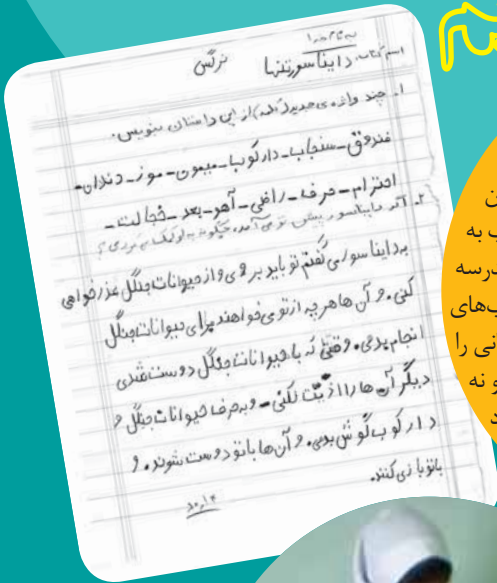 به نام خدا
اسم کتاب: داینا سور تنها نرگس
۱. چند واژه ی جدید (ده) از این داستان بنویس.
فندوق-سنجاب-دارکوب-میمون-موز-دندان-
احترام-حرف-راضی-آهو-بعد-خجالت-
۲. اگر داینا سور پیش تو می آمد، چگونه به او کمک می کردی؟
به داینا سور می گفتم تو باید بروی و از حیوانات جنگل عذر خواهی
کنی. و آن ها هر چه از تو می خواهند برای حیوانات جنگل
انجام بدهی. وقتی که با حیوانات جنگل دوست شدی
دیگر آن ها را اذیت نکنی- و به حرف حیوانات جنگل و
دارکوب گوش بدهی. و آن ها با تو دوست شوند. و
با تو بازی کنند.
ن
ب به
درسه
ب‌های
نی را
و نه
د